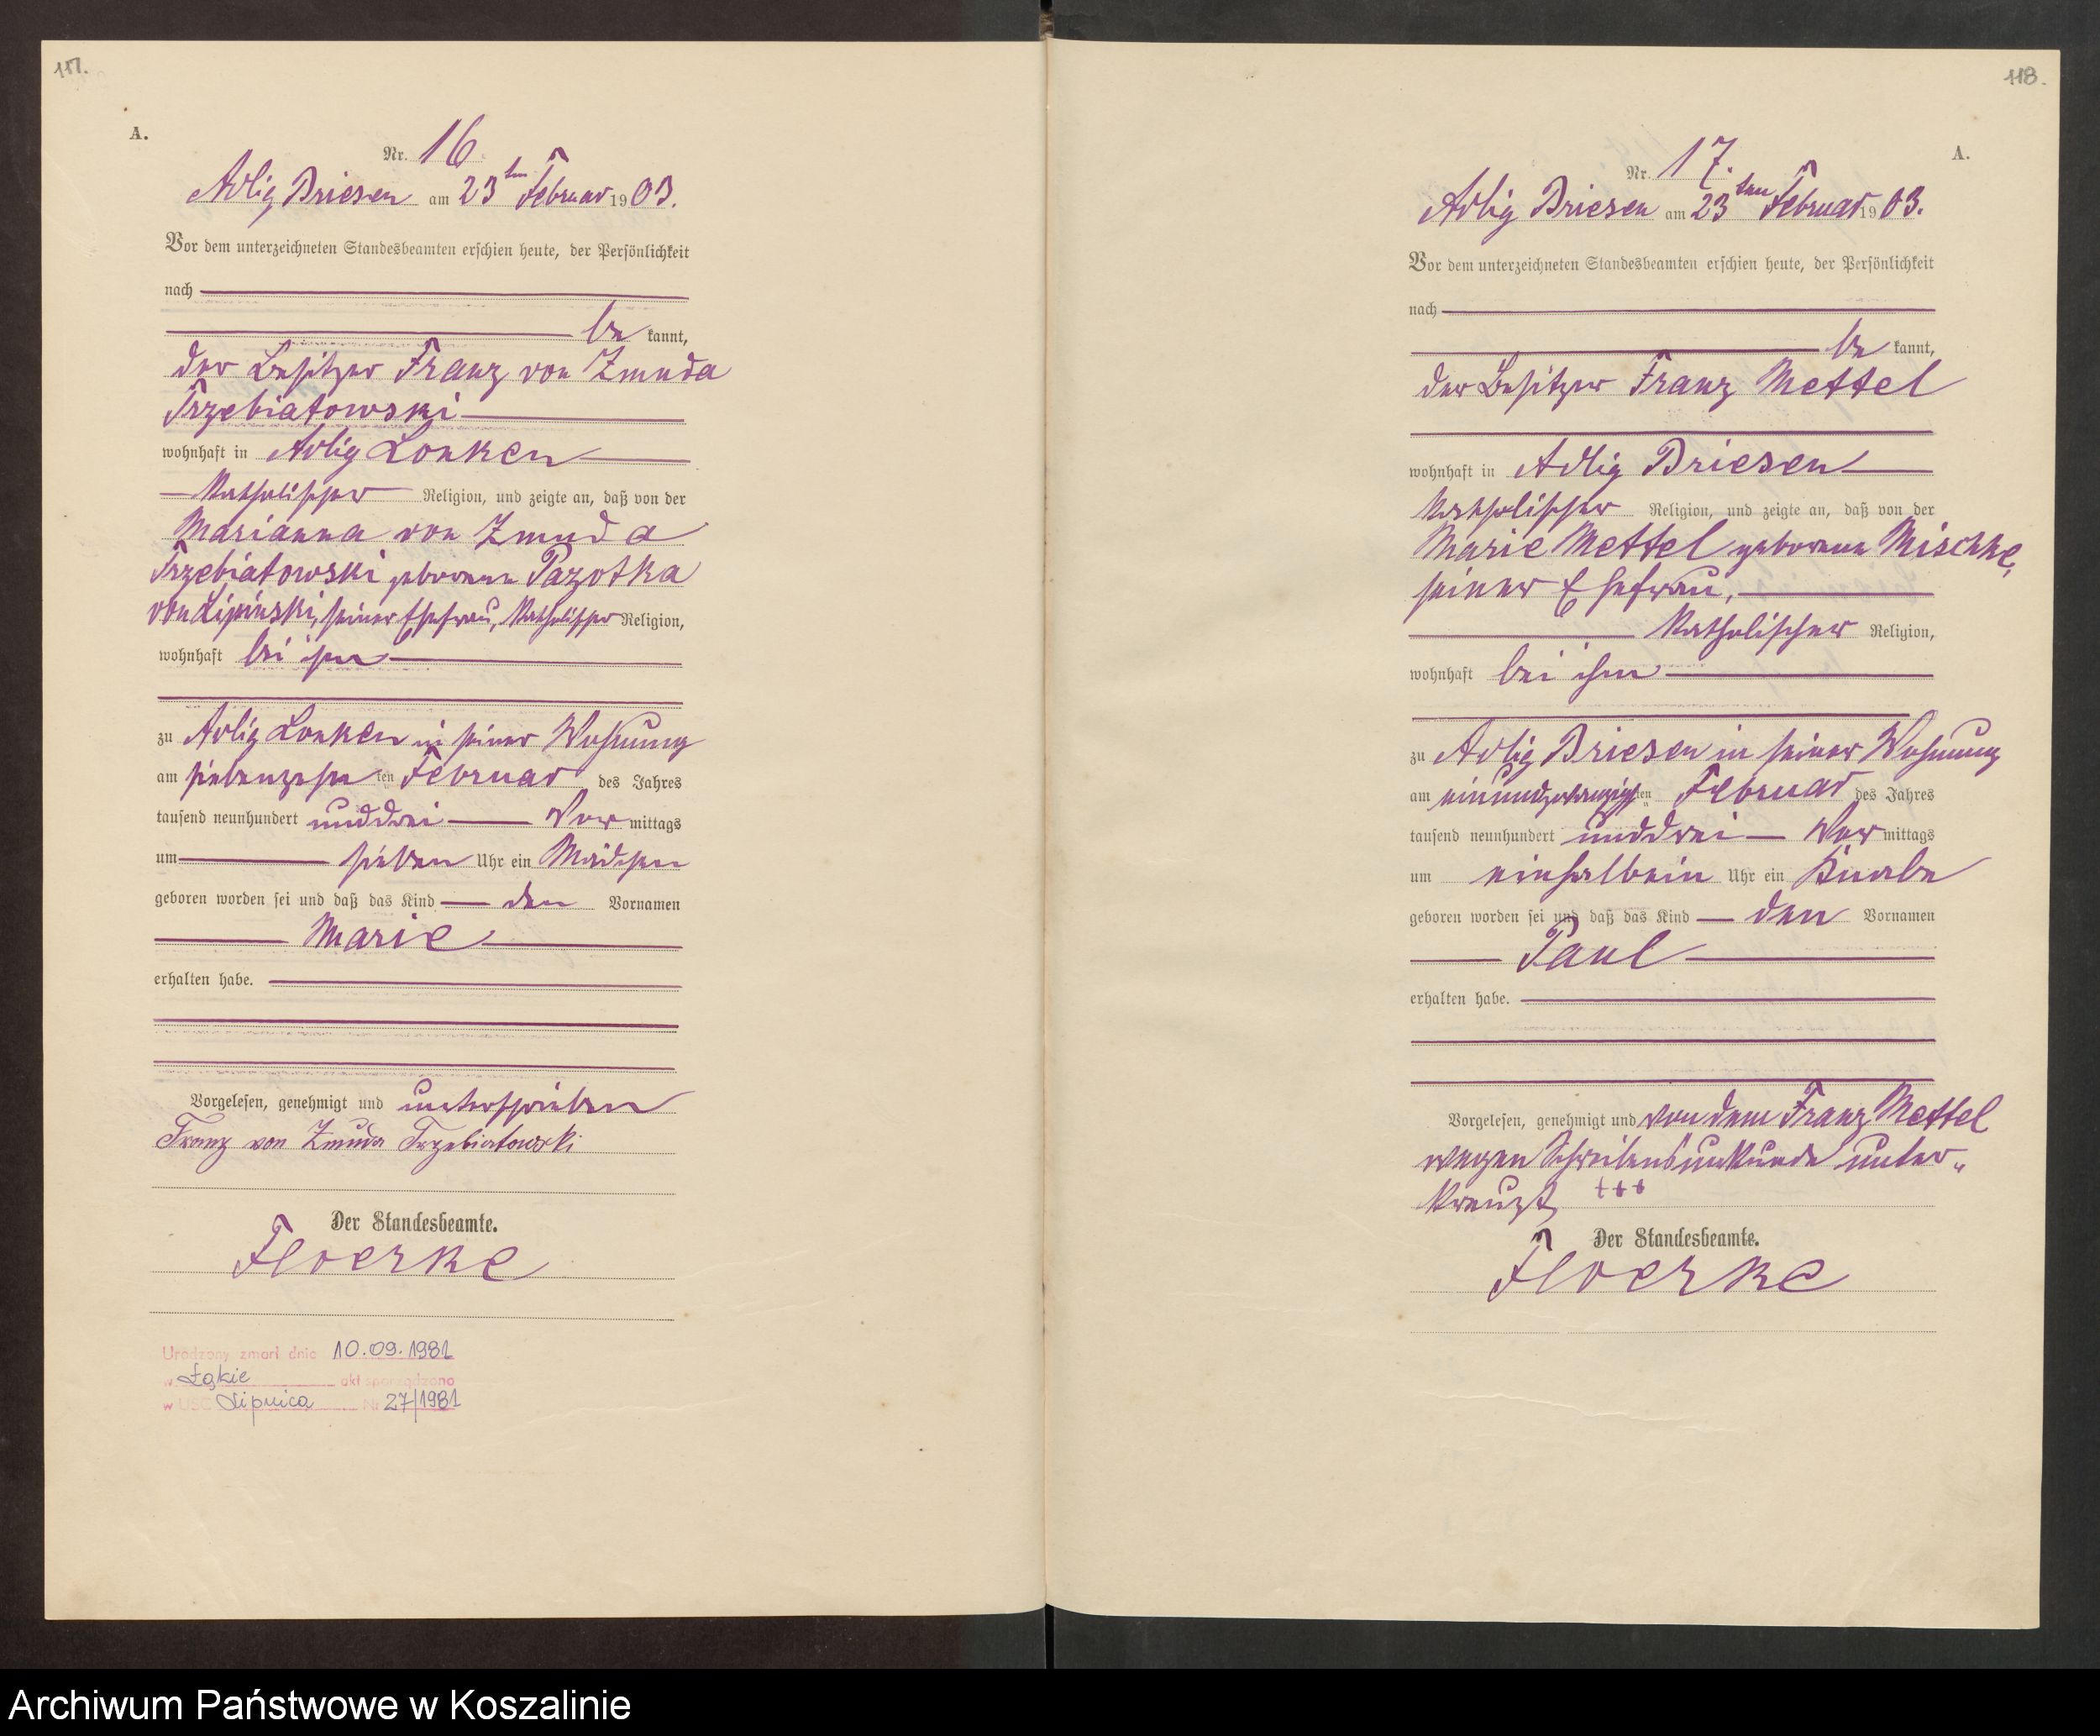 117.
A.
Nr. 16
Adlig Briesen am 23ten Februar 1903.
Vor dem unterzeichneten Standesbeamten erschien heute, der Persönlichkeit
nach
be kannt,
der Besitzer Franz von Zmuda
Trzebiatowski
wohnhaft in Adlig Lonken
katholischer Religion, und zeigte an, daß von der
Marianna von Zmuda
Trzebiatowski geborene Pazotka
von Lipinski, seiner Ehefrau, katholischer Religion,
wohnhaft bei ihm
zu Adlig Lonken in seiner Wohnung
am siebenzehn ten Februar des Jahres
tausend neunhundert unddrei Vor mittags
um sieben Uhr ein Mädchen
geboren worden sei und daß das Kind den Vornamen
Marie
erhalten habe.
Vorgelesen, genehmigt und unterschrieben
Franz von Zmuda Trzebiatowski
Der Standesbeamte.
Floerke
Urodzony zmarł dnia 10.09.1981
w Łąkie akt sporządzono
w USC Lipnica Nr 27/1981
118.
A.
Nr. 17.
Adlig Briesen am 23ten Februar 1903.
Vor dem unterzeichneten Standesbeamten erschien heute, der Persönlichkeit
nach
be kannt,
der Besitzer Franz Mettel
wohnhaft in Adlig Briesen
katholischer Religion, und zeigte an, daß von der
Marie Mettel geborene Mischke,
seiner Ehefrau,
katholischer Religion,
wohnhaft bei ihm
zu Adlig Briesen in seiner Wohnung
am einundzwanzigsten Februar des Jahres
tausend neunhundert unddrei Vor mittags
um einhalbein Uhr ein Knabe
geboren worden sei und daß das Kind den Vornamen
Paul
erhalten habe.
Vorgelesen, genehmigt und von dem Franz Mettel
wegen Schreibensunkunde unter-
kreuzt +++
Der Standesbeamte.
Floerke
Archiwum Państwowe w Koszalinie